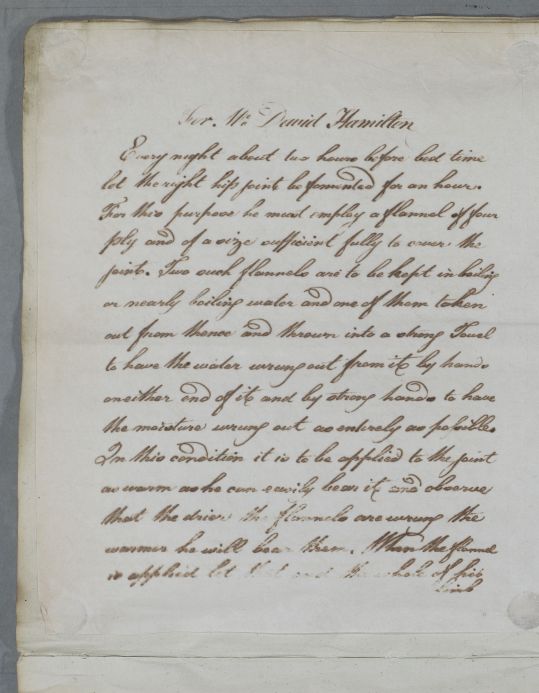 For Mr David Hamilton
Every night about two hours before bed time
let the right hip joint be fomented for an hour.
For this purpose he must employ a flannel of four
ply and of a size sufficient fully to cover the
joint. Two such flannels are to be kept in boiling
or nearly boiling water and one of them taken
out from thence and thrown into a strong Towel
to have the water wrung out from it by hands
on either end of it and by strong hands to have
the moisture wrung out as entirely as possible.
In this condition it is to be applied to the joint
as warm as he can easily bear it and observe
that the drier the flannels are wrung the
warmer he will bear them. When the flannel
is applied let that and the whole of his
limb